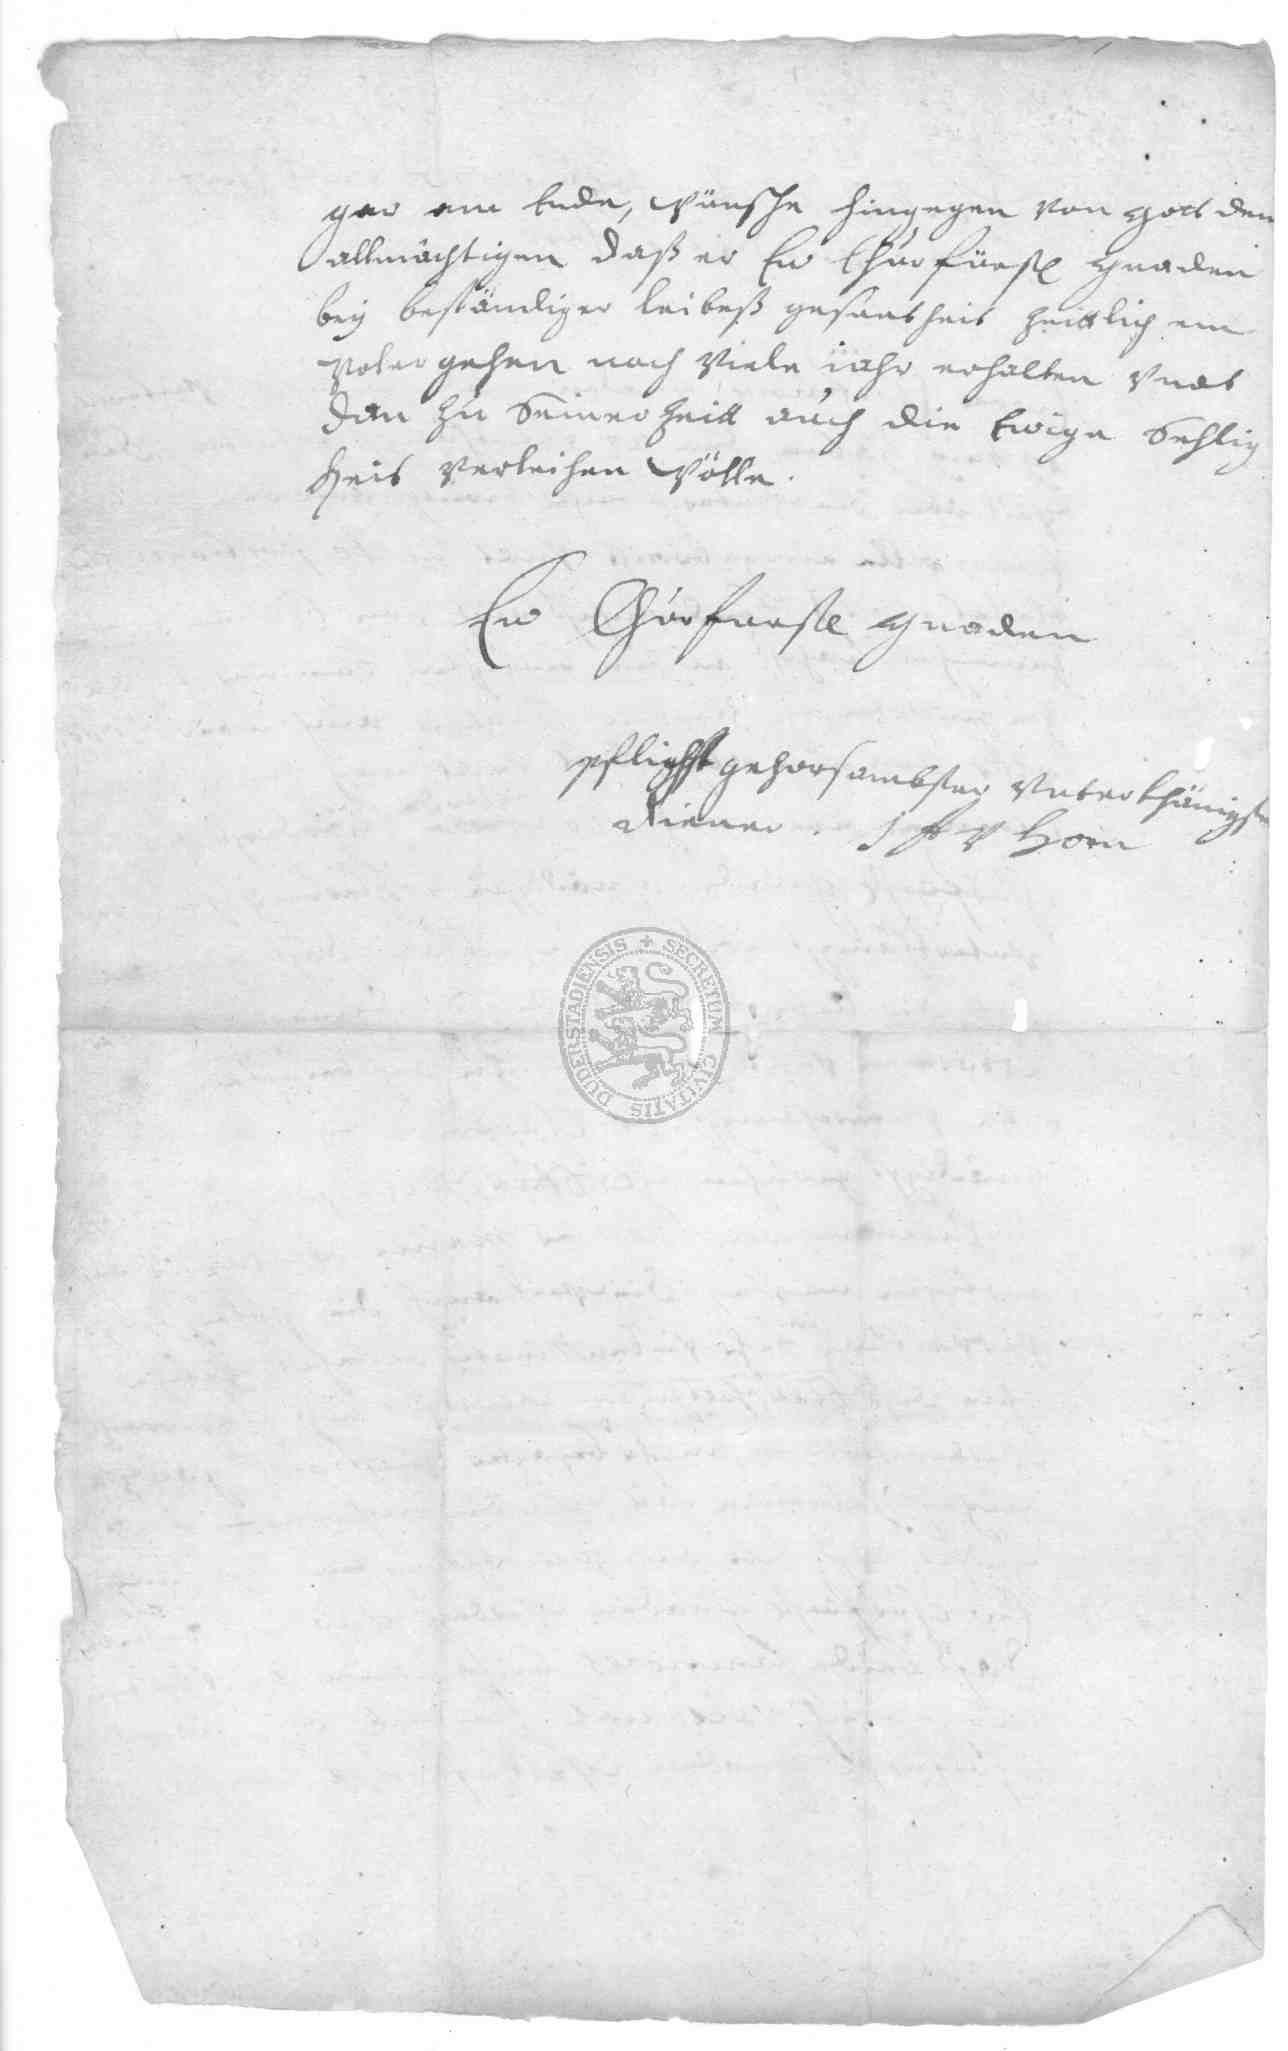 gar am Ende, wünsche hingegen von gott dem
allmächtigen daß er Ew Churfürstl gnaden
bey beständiger leibeß gesuntheit zeittlichem
wolergehen noch viele jahr erhalten undt
dan zu seiner zeitt auch die Ewige sehlig
heit verleihen wölle.
Ew Churfurstl gnaden
pflichtgehorsambster unterthänigster
diener. J F V Horn
SECRETUM CIVITATIS DUDERSTADIENSIS